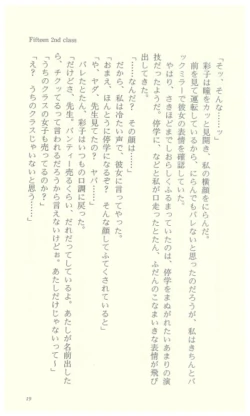 Fifteen 2nd class
「そッ、そんな……ッ」
彩子は瞳をカッと見開き、私の横顔をにらんだ。
前を見て運転しているから、にらんでもバレないと思ったのだろうが、私はきちんとバ
ックミラーで彼女の表情を確認していた。
やはり、さきほどまでしおらしくふるまっていたのは、停学をまぬがれたいあまりの演
技だったようだ。停学に、などと私が口走ったとたん、ふだんのこなまいきな表情が飛び
出してきた。
「……なんだ？　その顔は……」
だから、私は冷たい声で、彼女に言ってやった。
「おまえ、ほんとうに停学になるぞ？　そんな顔してふてくされていると」
「や、ヤダ、先生見てたの？　ヤバ……」
バレたとたん、彩子はいつもの口調に戻った。
「だけどさ、先生。パンティー売るくらい、だれだってしているよ。あたしが名前出した
ら、チクッてるって言われるだろうから言えないけどぉ。あたしだけじゃないって～」
「うちのクラスの女子も売ってるのか？」
「え？　うちのクラスじゃいないと思う……」
19